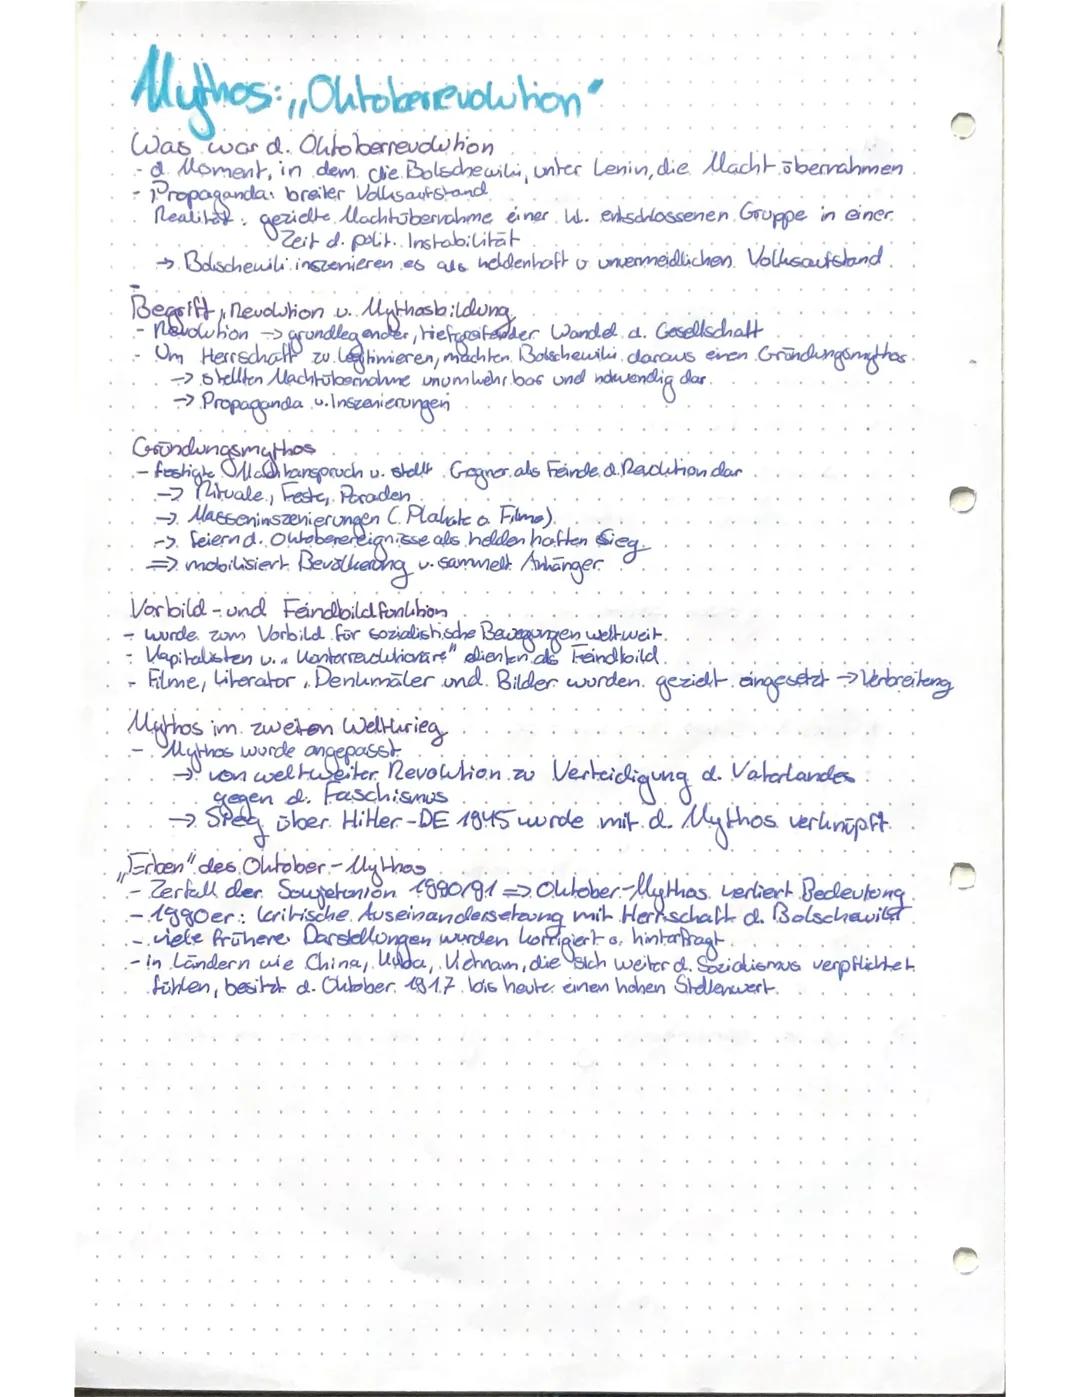 Mythos: „Oktoberrevolution"
Was war d. Oktoberrevolution
- d. Moment, in dem die Bolschewiki, unter Lenin, die Macht übernahmen
- Propaganda: breiter Volksaufstand
Realität: gezielte Machtübernahme einer kl. entschlossenen Gruppe in einer
Zeit d. polit. Instabilität
→ Bolschewiki inszenieren es als heldenhaft u unvermeidlichen Volksaufstand
Begriff, Revolution u. Mythosbildung
- Revolution → grundlegender, tiefgreifender Wandel d. Gesellschaft
- Um Herrschaft zu legtinieren, machten Bolschewiki daraus einen Gründungsmythos
→ stellten Machtübernahme unumkehrbar und notwendig dar
→ Propaganda u. Inszenierungen
Gründungsmythos
- festigte Machtanspruch u. stellt Gegner als Feinde d. Revolution dar
→ Rituale, Feste, Paraden
→ Masseninszenierungen (Plakate o. Filme)
→ feiern d. Oktoberereignisse als heldenhaften Sieg
⇒ mobilisiert Bevölkerung u. sammelt Anhänger
Vorbild- und Feindbildfunktion
- wurde zum Vorbild für sozialistische Bewegungen weltweit
- Kapitalisten u. „Konterrevolutionäre" dienten als Feindbild
- Filme, Literatur, Denkmäler und Bilder wurden gezielt eingesetzt → Verbreitung
Mythos im zweiten Weltkrieg
- Mythos wurde angepasst
→ von weltweiter Revolution zu Verteidigung d. Vaterlandes
gegen d. Faschismus
→ Sieg über Hitler-DE 1945 wurde mit d. Mythos verknüpft
„Erben" des Oktober-Mythos
- Zerfall der Sowjetunion 1990/91 ⇒ Oktober-Mythos verliert Bedeutung
- 1990er: kritische Auseinandersetzung mit Herrschaft d. Bolschewiki
- viele frühere Darstellungen wurden korrigiert o. hinterfragt
- in Ländern wie China, Kuba, Vietnam, die sich weiter d. Sozialismus verpflichtet
fühlen, besitzt d. Oktober 1917 bis heute einen hohen Stellenwert.